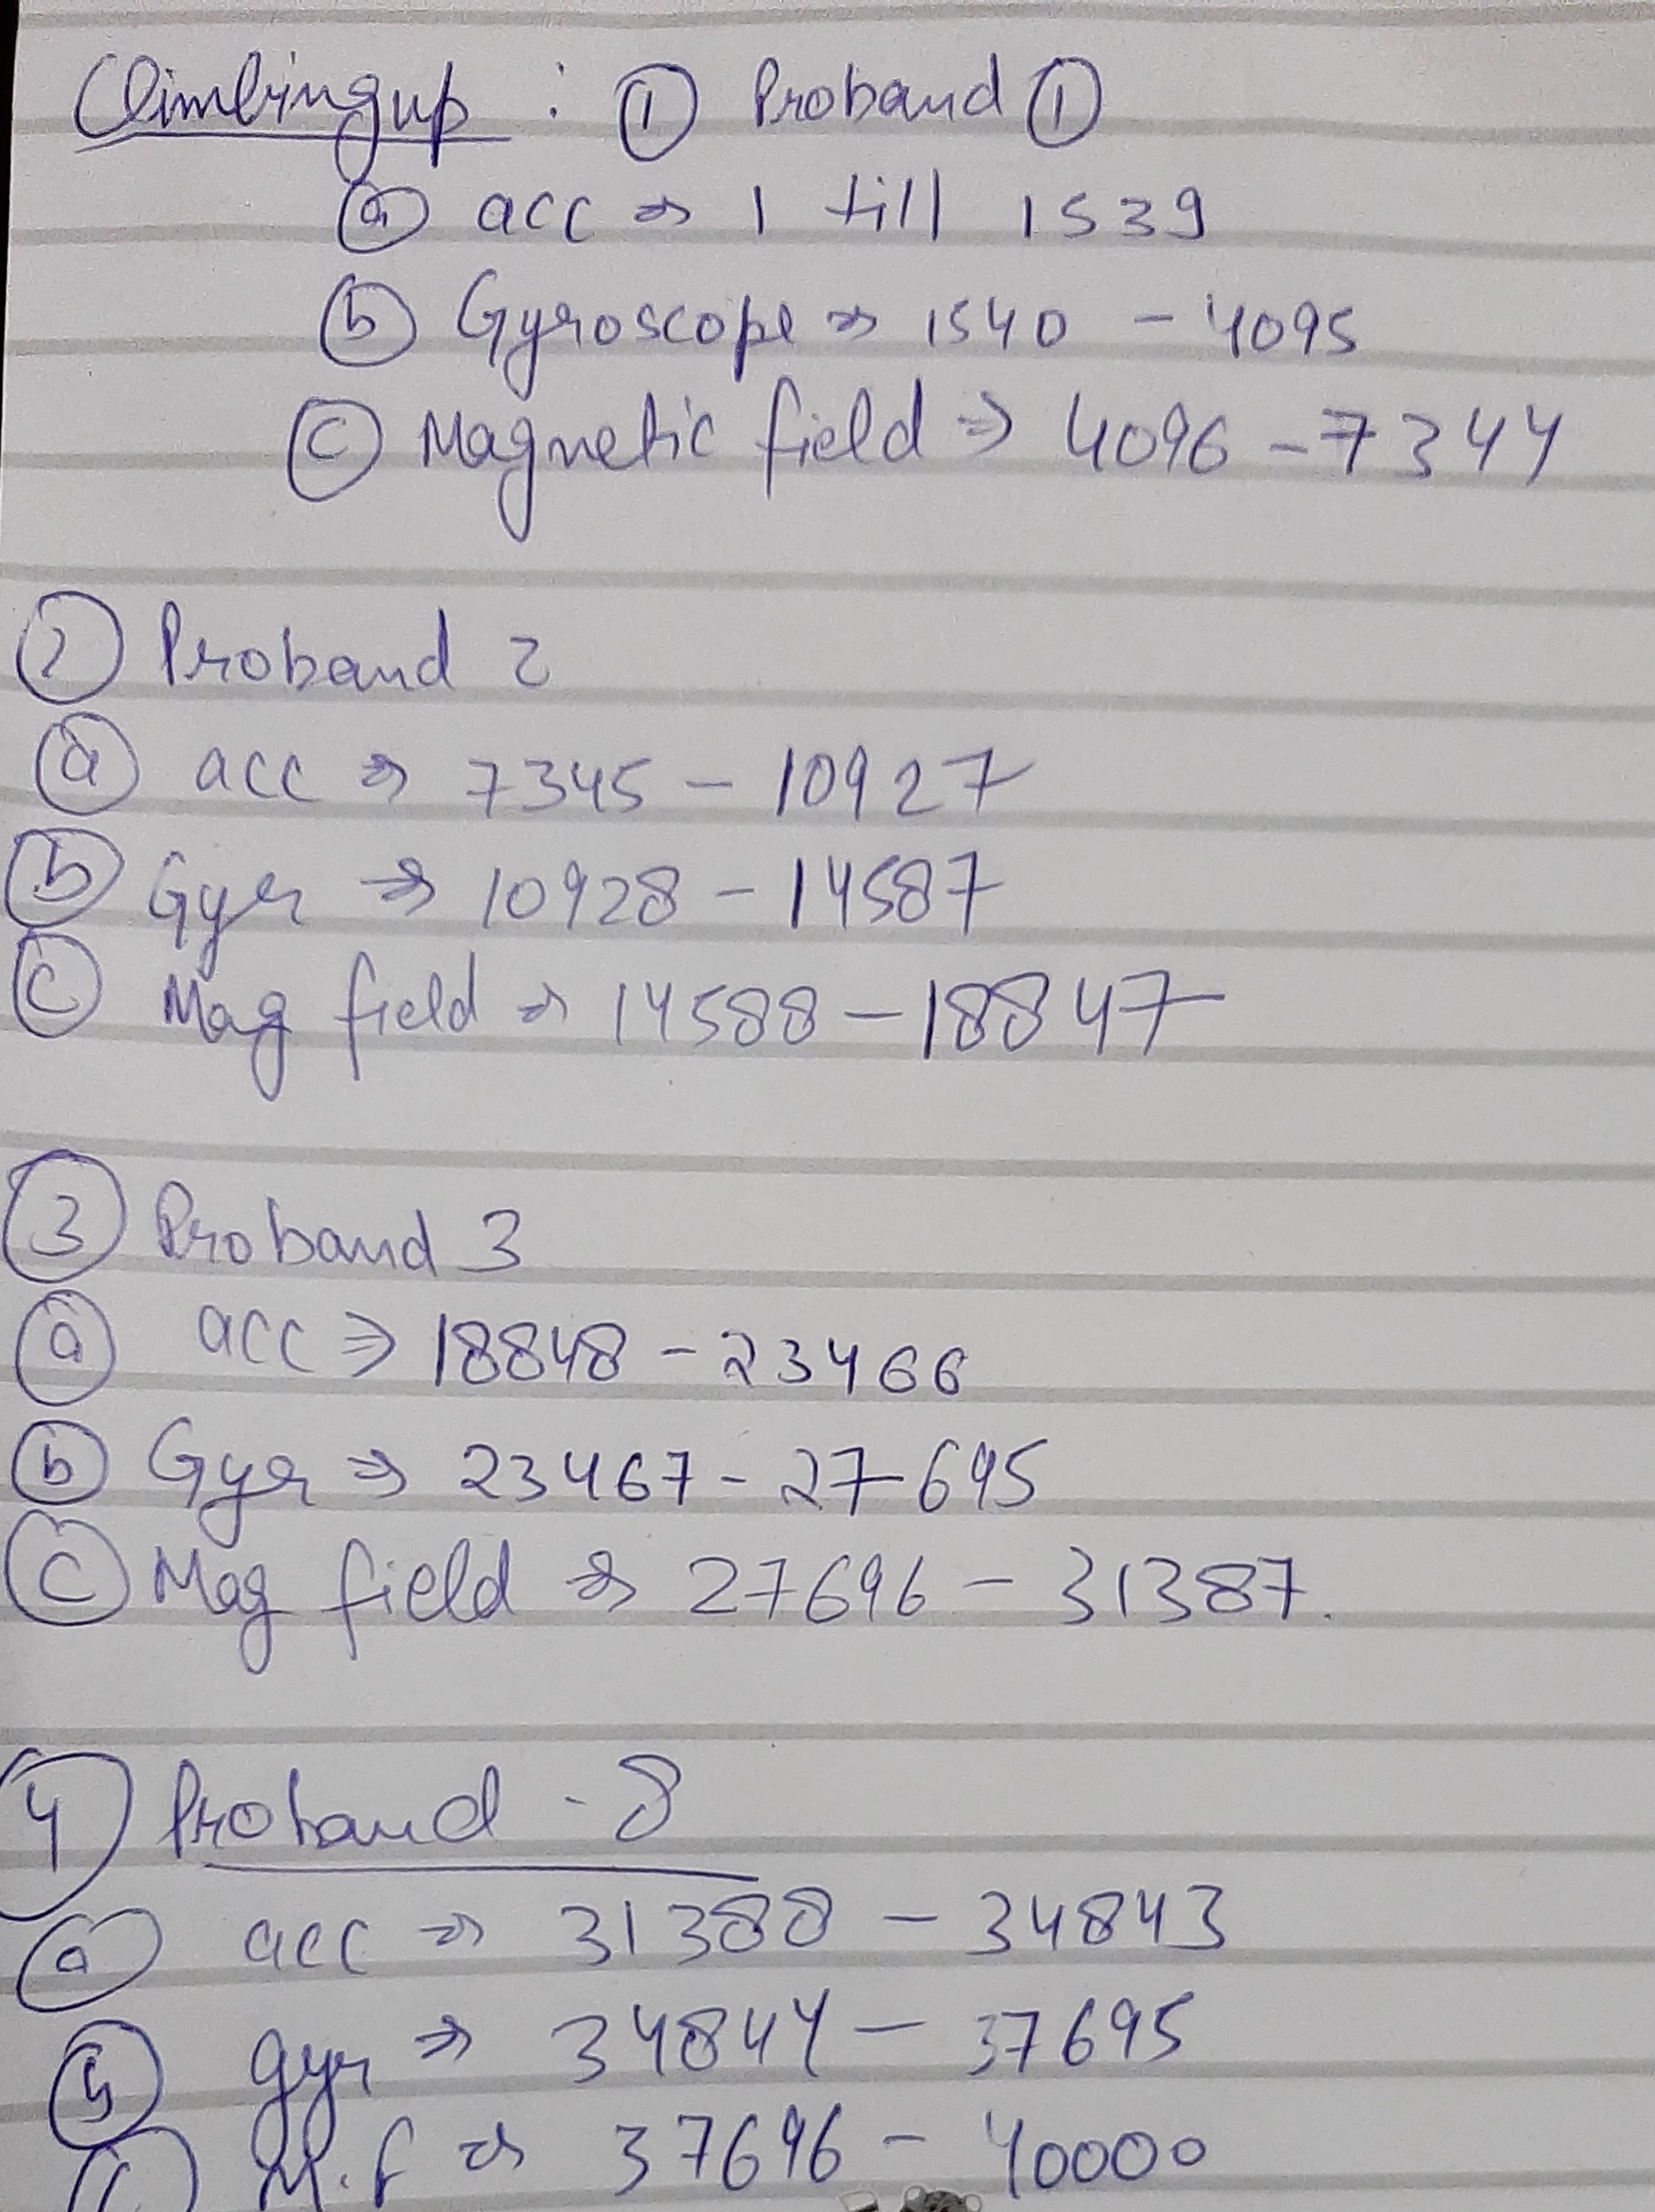 Climbingup : ① Proband ①
ⓐ acc ⇒ 1 till 1539
ⓑ Gyroscope ⇒ 1540 - 4095
ⓒ Magnetic field ⇒ 4096 - 7344
② Proband 2
ⓐ acc ⇒ 7345 - 10927
ⓑ Gyr ⇒ 10928 - 14587
ⓒ Mag field ⇒ 14588 - 18847
③ Proband 3
ⓐ acc ⇒ 18848 - 23466
ⓑ Gyr ⇒ 23467 - 27695
ⓒ Mag field ⇒ 27696 - 31387.
④ Proband - 8
ⓐ acc ⇒ 31388 - 34843
ⓑ gyr ⇒ 34844 - 37695
ⓒ M.f ⇒ 37696 - 40000